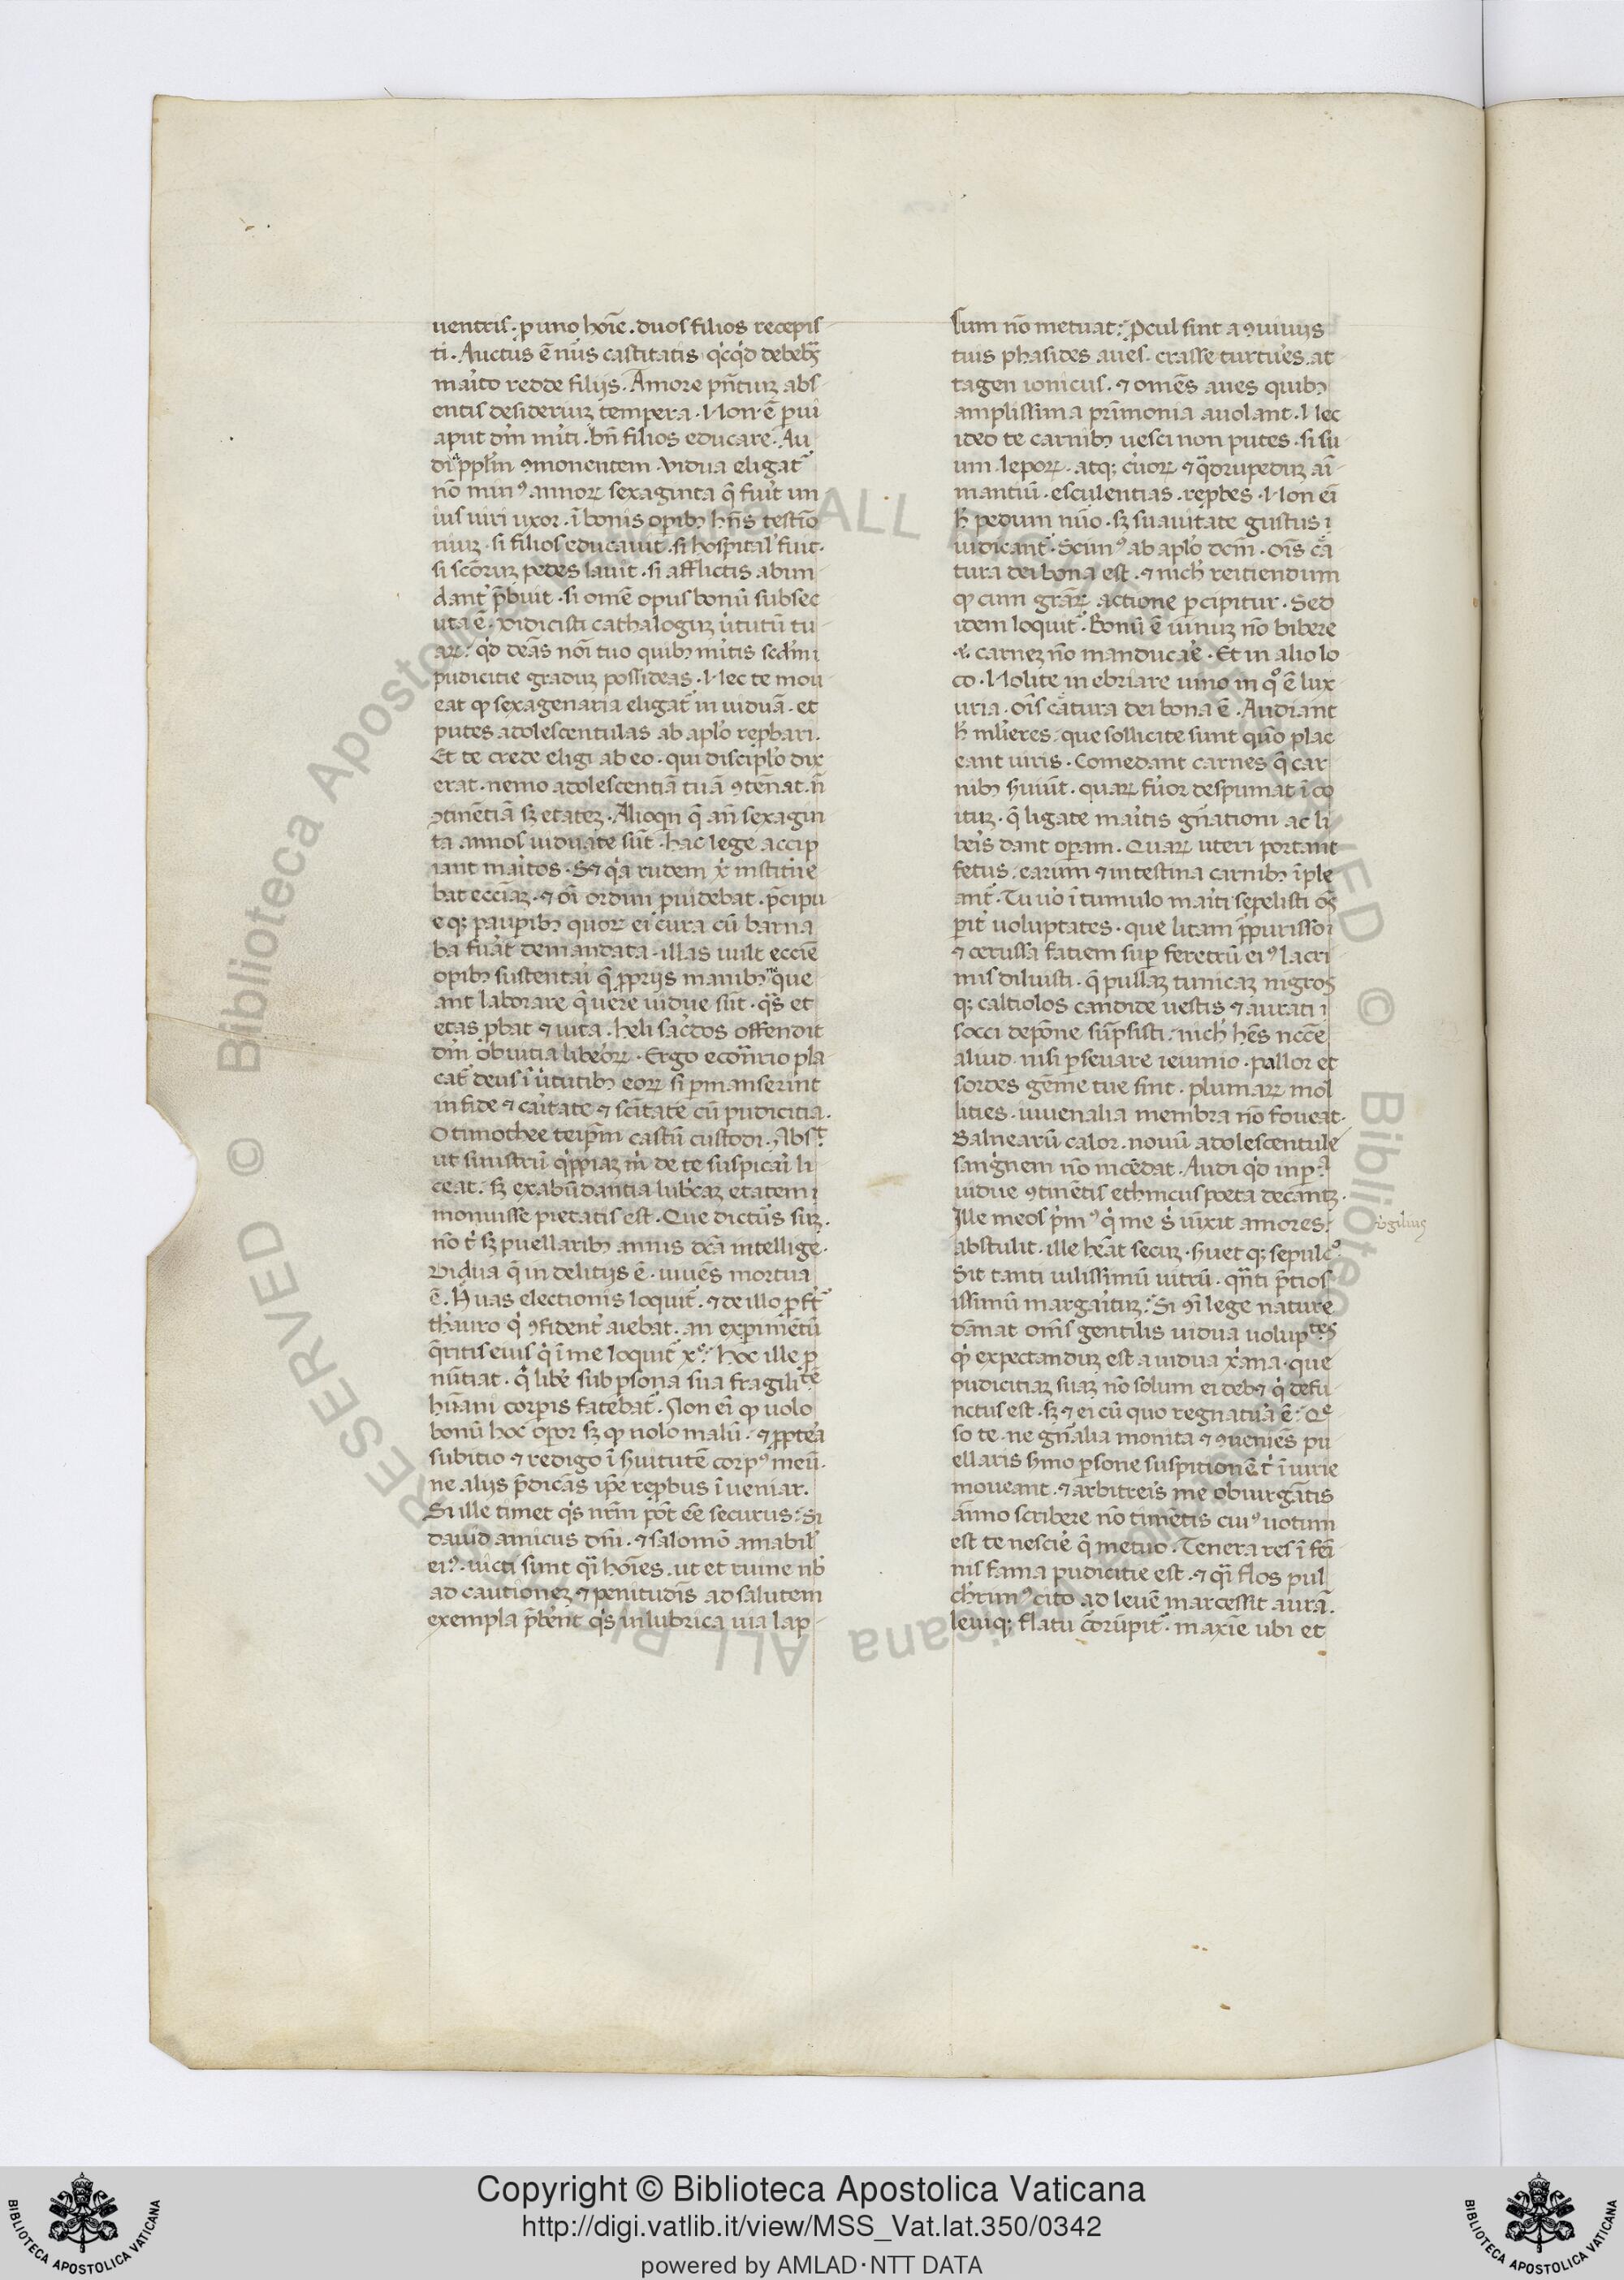 uentris · ꝑ uno hoīe . duos filios recepis
ti . Auctus ē nūs castitatis q̇cq̇d debebꝫ
maṙito redde filijs . Amore pn̄tiuꝫ abs
entis desideriuꝫ tempera . Non ē ꝑui
aput dn̄i miti . bn̄ filios educare . Au
di ꝯmonentem . Vidua eligat᷑
nō min⁹ annoꝝ sexaginta q̄ fuit un
ius uiri uxor . ī bonis oꝑibꝫ hn̄s testīo
niuꝫ . si filios educauit . si hospital̕ fuit .
si scōruꝫ pedes lauit . si afflictis abun
dant᷑ p̄buit . si omē opus bonū subsec
uta ē . Didicisti cathaloguꝫ u̇tutū tu
aꝝ . q̇d deās nōi tuo quibꝫ mitis scd̄mi
pudicitie graduꝫ possideas . Nec te mou
eat ꝙ sexagenaria eligat᷑ in uiduā . et
putes adolescentulas ab aplo repbari .
Et te crede eligi ab eo . qui disciplo dix
erat . nemo adolescentiā tuā ꝯtēnat . n̄
ꝯtinētiā sꝫ etateꝫ . Alioqn q̄ an̄ sexagin
ta annos uiduate sūt . hac lege accip
iant maṙitos . Sꝫ q̇a rudem x̄ institue
bat eccīaꝫ . ⁊ oī ordini ꝓuidebat . p̄cipu
eqꝫ pauꝑibꝫ quoꝝ ei cura cū barna
ba fuāt demandata . illas uult eccīe
opibꝫ sustentai q̄ ꝓprijs manibꝫ que
ant laborare q̄ uere uidue sūt . q̇s et
etas ꝓbat ⁊ uita . heli saċdos offendit
dn̄i ob uitia libeoꝝ . Ergo econ̄rio pla
cat᷑ deus ī u̇tutibꝫ eoꝝ si ꝑmanserint
in fide ⁊ caṙitate ⁊ scītate cū pudicitia .
O timothee teip̄m castū custodi . Abs.t
ut sinistrū q̇ppiaꝫ m̄ de te suspicai li
ceat . sꝫ ex abūdantia lubcaꝫ etatem
monuisse pietatis est . Que dictus suꝫ .
nō t̄ sꝫ puellaribꝫ annis dc̄a intellige .
Vidua q̄ in delitijs ē . uiuēs mortua
ē . H uas electionis loquit᷑ . ⁊ de illo ꝓft᷑
thauro q̇ ꝯfident᷑ aiebat . an experimētū
q̄ritis eius q̇ ī me loquit᷑ x̄c . hoc ille ꝓ
nūtiat . q̇ libė sub ꝑsona sua fragilitē
hūani corꝑis fatebat᷑ . Non eī ꝙ uolo
bonū hoc oꝑor sꝫ ꝙ nolo malū . ⁊ ꝓpte̕a
subitio ⁊ redigo ī ẜuitutē corp⁹ meū .
ne alijs p̄dicās ip̄e reprobus īueniar .
Si ille timet q̇s nr̄m pōt eē securus . Si
dauid amicus dn̄i . ⁊ salomō amabil̕
ei⁹ . uicti sunt qi hoīes . ut et ruine nb̄
ad cautioneꝫ ⁊ penitudīs ad salutem
exempla p̄berēt q̇s in lubrica uia lap
sum nō metuat . Procul sint a ꝯuiuijs
tuis phasides aues . crasse turtures . at
tagen ionicus . ⁊ omēs aues quibꝫ
amplissima pr̄imonia auolant . Nec
ideo te carnibꝫ uesci non putes . si su
um . lepoꝝ . atqꝫ ceruoꝝ ⁊ q̇drupeduꝫ ai
mantiū . esculentias . reprobes . Non eī
h̄ pedum nūo . sꝫ suauitate gustus i
iudicant᷑ . Scim⁹ ab aplo dcm . oīs cā
tura dei bona est . ⁊ nich̕ reitiendum
ꝙ cum grāꝝ actione ꝑcipitur . Sed
idem loquit᷑ . Bonū ē uinuꝫ nō bibere
⁊ carneꝫ nō manducare . Et in alio lo
co . Nolite inebriare uino in q° ē lux
uria . oīs cātura dei bona ē . Audiant
h̄ mlieres . que sollicite sunt quō plac
eant uiris . Comedant carnes q̄ car
nibꝫ ẜuiūt . quaꝝ furor despumat ī co
ituꝫ . q̄ ligate maṙitis gn̄ationi ac li
beris dant oꝑam . Quaꝝ uteri portant
fetus . earum ⁊ intestina carnibꝫ īple
ant᷑ . Tu uo ī tumulo maṙiti sepelisti oēs
ꝑit᷑ uoluptates . que litam ꝓpurisso
⁊ cerussa fatiem suꝑ feretrū ei⁹ lacri
mis diluisti . q̄ pullaꝫ tunicaꝫ nigros
qꝫ caltiolos candide uestis ⁊ aurati
socci depōne sūpsisti . nich̕ hēs nccē
aliud . nisi ꝑseuare ieiunio . pallor et
sordes gēme tue sint . plumaꝝ mol
lities . iuuenalia membra nō foueat .
Balnearū calor . nouū adolescentule
sangnem nō incēdat . Audi q̇d in ꝑ.a
uidue ꝯtinētis ethnicus poeta decantꝫ .
Ille meos prim⁹ q̇ me s̄ iūxit amores .
abstulit . ille hēat secuꝫ . ẜuet qꝫ sepulc° .
Sit tanti uilissimū uitrū . qn̄ti p̄tios
issimū margaṙituꝫ . Si ꝯi lege nature
dānat om̄s gentilis uidua uoluptes
qͥ expectanduꝫ est a uidua xana . que
pudicitiaꝫ suaꝫ nō solum ei debꝫ q̇ defu
nctus est . sꝫ ⁊ ei cū quo regnatura ē . Qe
so te . ne gn̄alia monita ⁊ ꝯueniēs pu
ellaris ẜmo ꝑsone suspitionē t̄ īiurie
moueant . ⁊ arbitreis me obiurgātis
animo scribere nō timētis cui⁹ uotum
est te nescire q̄ metuo . Tenera res ī fei
nis fama pudicitie est . ⁊ qi flos pul
cherrim⁹ cito ad leuē marcessit aurā .
leuiqꝫ flatu corrūpit᷑ . maxie ubi et
uirgilius
Copyright © Biblioteca Apostolica Vaticana
http://digi.vatlib.it/view/MSS_Vat.lat.350/0342
powered by AMLAD·NTT DATA